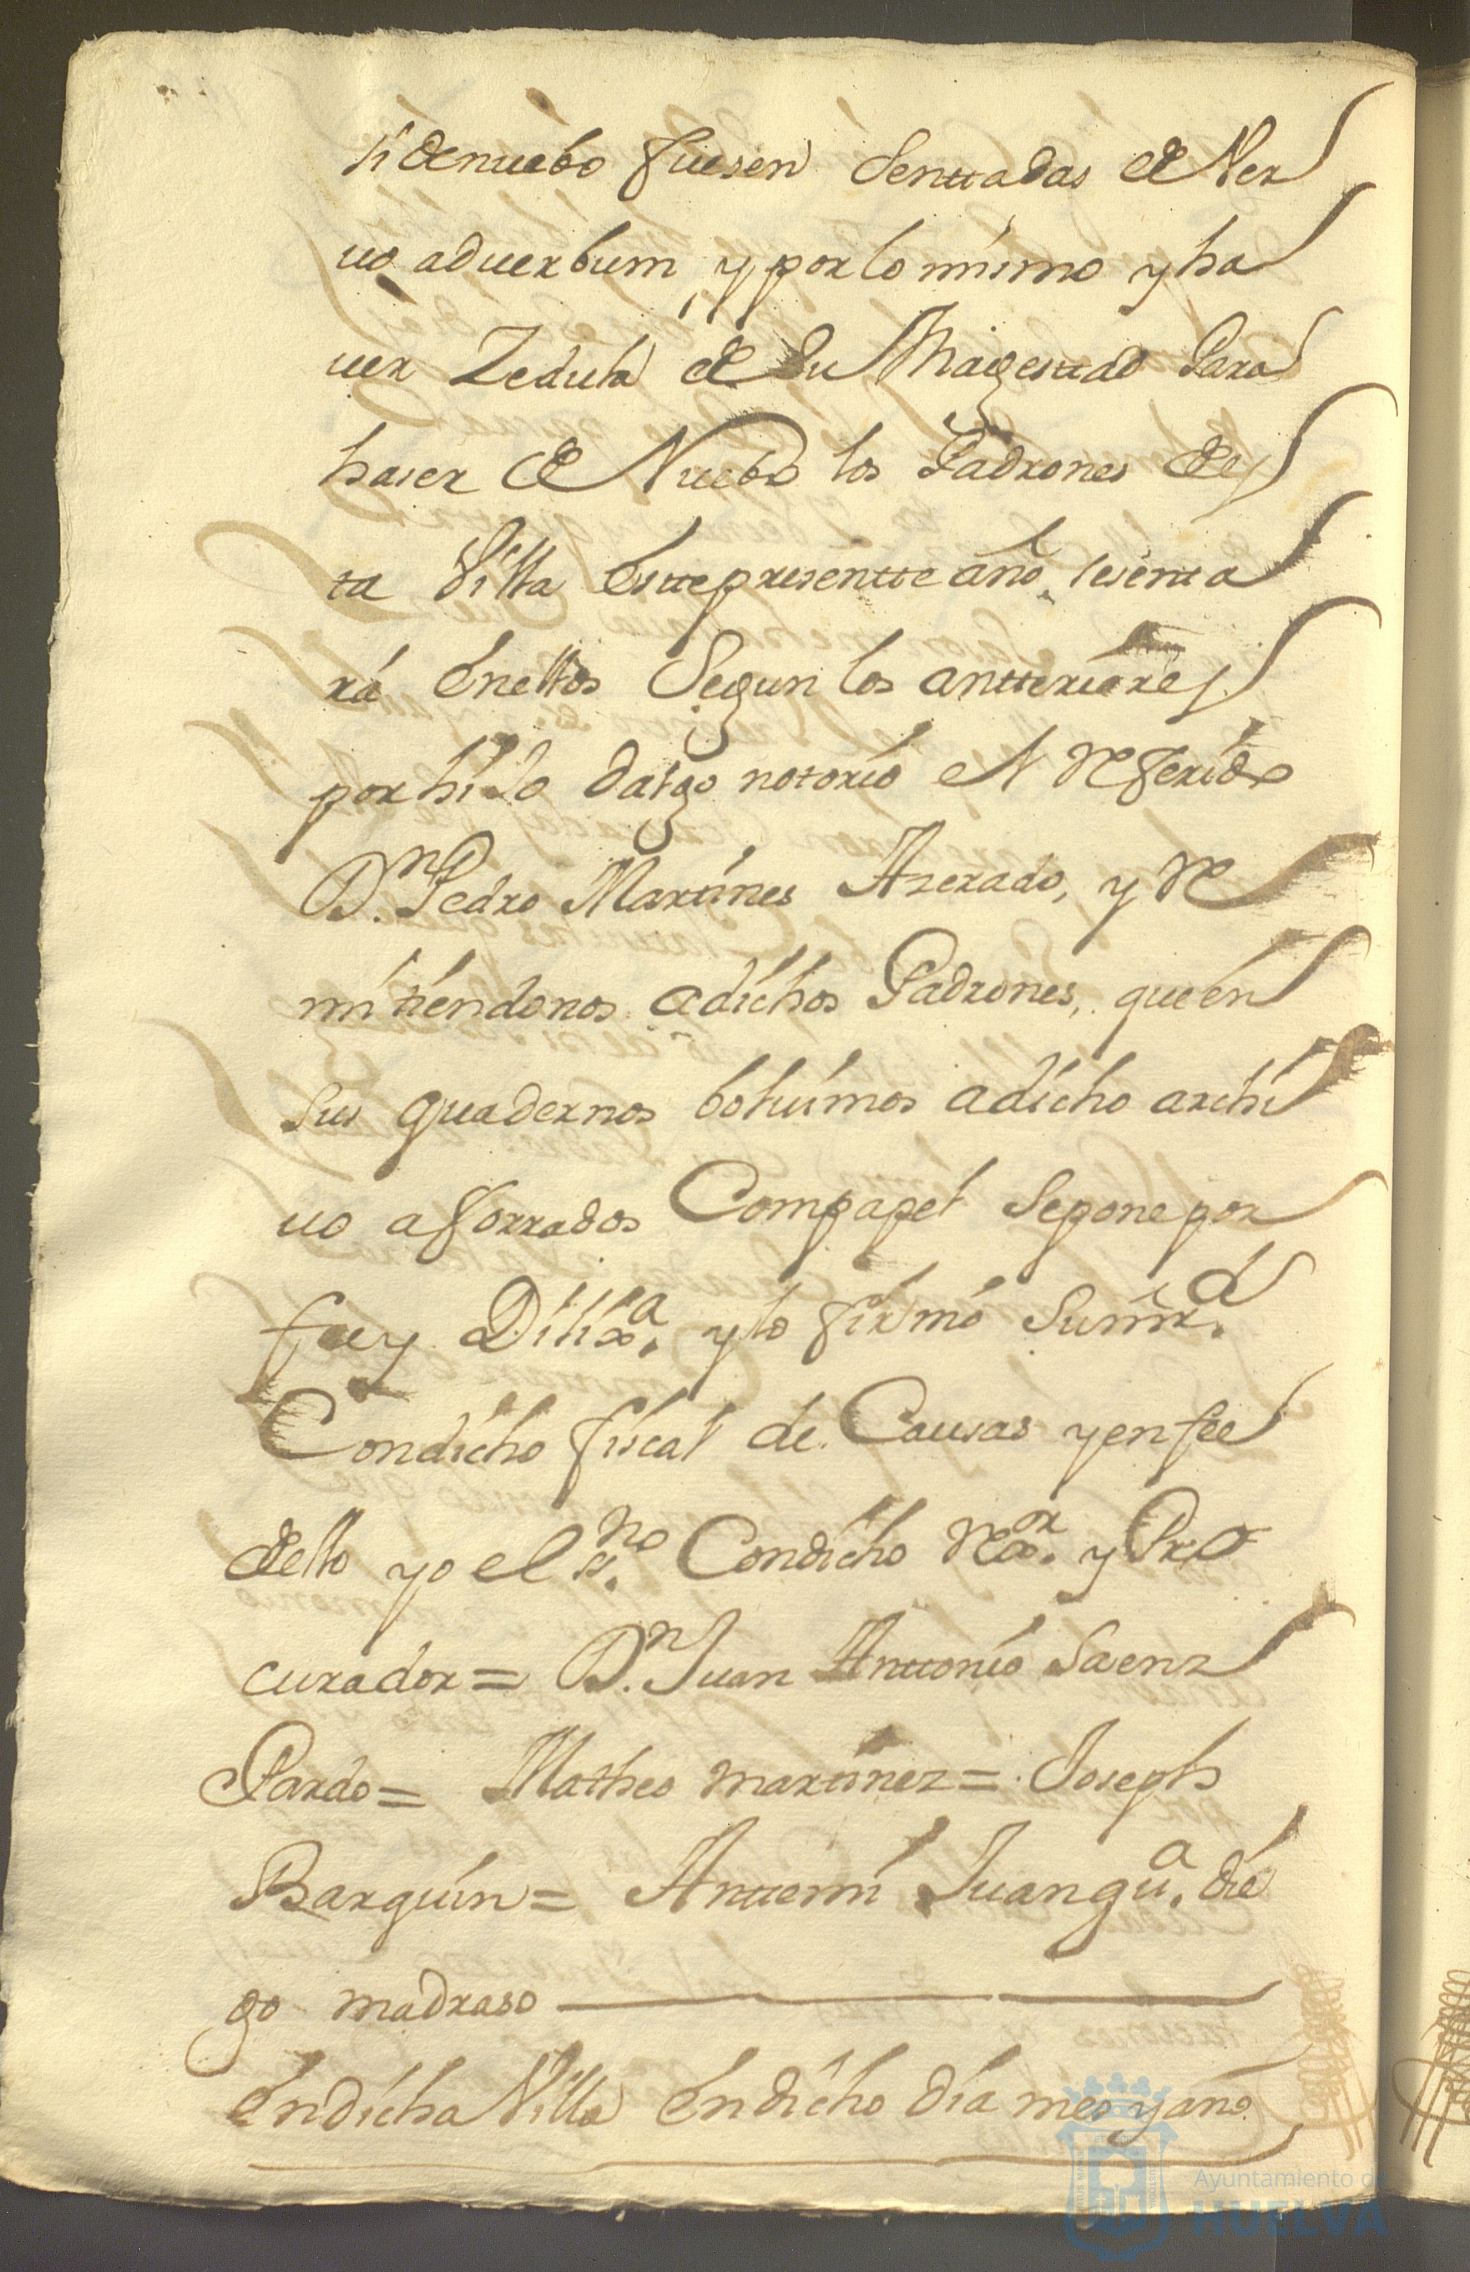 si de nuebo fuesen Senttadas de Ver
uo aduerbum, y por lo mismo y ha
uer Zedula de Su Magesttad Para
haser de Nuebo los Padrones des
ta Villa Estte presentte año, sesenta
rá Enellos Segun los antteriores
por hiJo dalgo notorio el Referido
D.ⁿ Pedro Martines Azerado, y Re
mitiendonos adichos Padrones, que en
sus quadernos boluimos adicho archi
uo aforrados Compapel Sepone por
fee y Dilix.ª y lo firmó Sumr.d
Condicho fiscal de Causas y en fee
dello yo el ss.no Condicho Rex.or y Pro
curador = D.ⁿ Juan Anttonio Saenz
Pardo = Matheo martinez = Joseph
Barguin = Anttemi Juan gu.ª die
go madraso
En dicha Villa En dicho dia mes y año
Ayuntamiento de
HUELVA